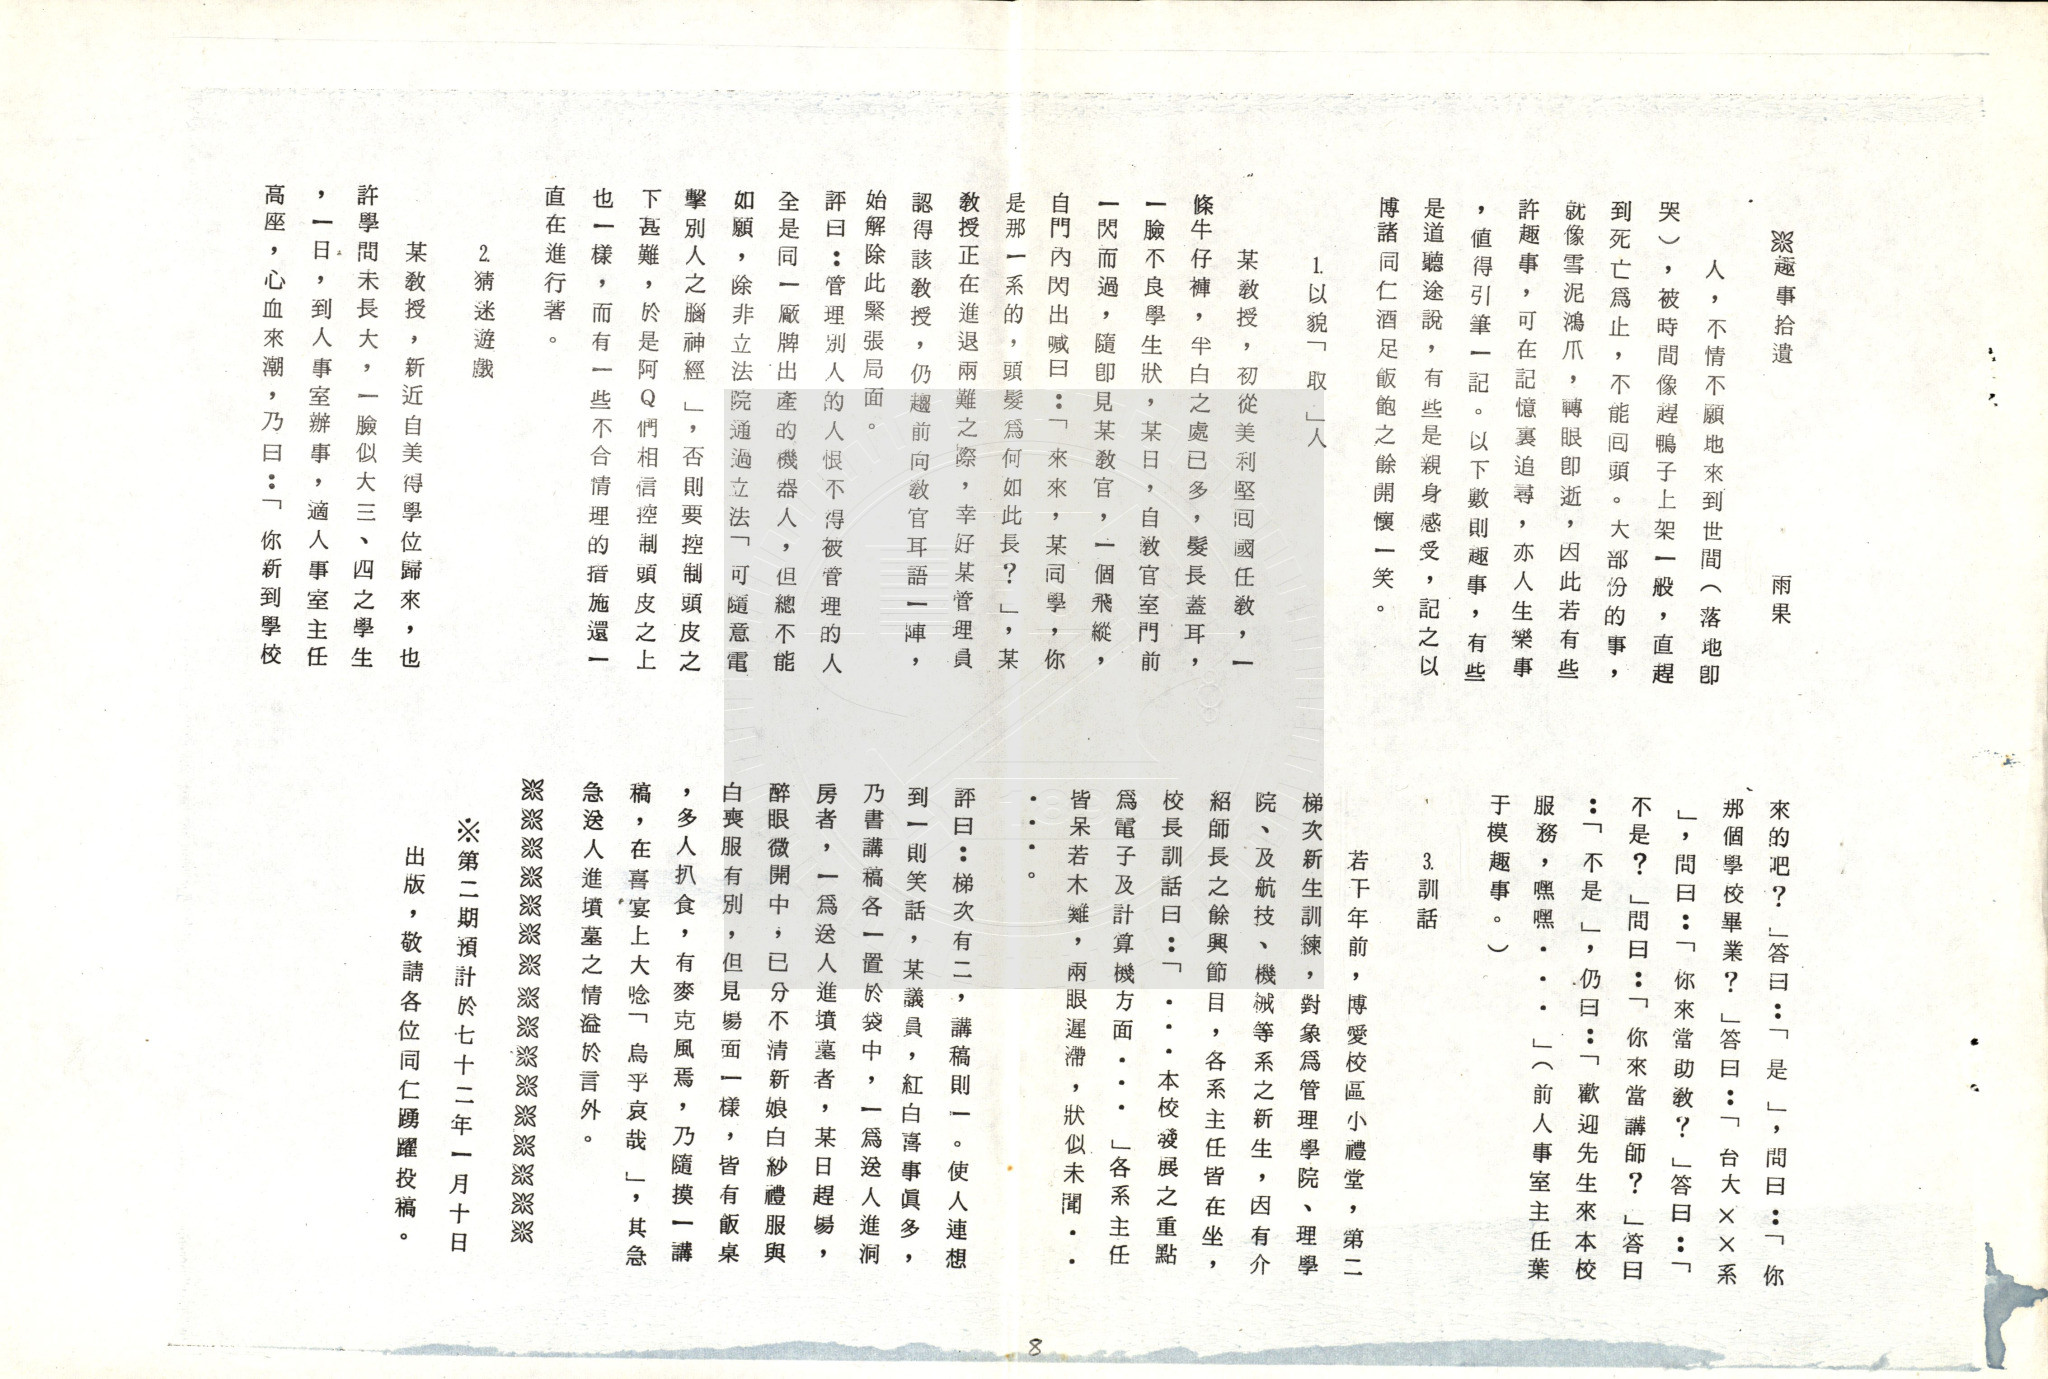 ※趣事拾遺　　　　　　　雨果
人，不情不願地來到世間（落地卽
哭），被時間像趕鴨子上架一般，直趕
到死亡爲止，不能囘頭。大部份的事，
就像雪泥鴻爪，轉眼卽逝，因此若有些
許趣事，可在記憶裏追尋，亦人生樂事
，値得引筆一記。以下數則趣事，有些
是道聽途說，有些是親身感受，記之以
博諸同仁酒足飯飽之餘開懷一笑。
1.以貌「取」人
某教授，初從美利堅囘國任教，一
條牛仔褲，半白之處已多，髮長蓋耳，
一臉不良學生狀，某日，自教官室門前
一閃而過，隨卽見某教官，一個飛縱，
自門內閃出喊曰：「來來，某同學，你
是那一系的，頭髮爲何如此長？」，某
教授正在進退兩難之際，幸好某管理員
認得該教授，仍趨前向教官耳語一陣，
始解除此緊張局面。
評曰：管理別人的人恨不得被管理的人
全是同一廠牌出產的機器人，但總不能
如願，除非立法院通過立法「可隨意電
擊別人之腦神經」，否則要控制頭皮之
下甚難，於是阿Q們相信控制頭皮之上
也一樣，而有一些不合情理的措施還一
直在進行著。
2.猜迷遊戲
某教授，新近自美得學位歸來，也
許學問未長大，一臉似大三、四之學生
，一日，到人事室辦事，適人事室主任
高座，心血來潮，乃曰：「你新到學校
來的吧？」答曰：「是」，問曰：「你
那個學校畢業？」答曰：「台大××系
」，問曰：「你來當助教？」答曰：「
不是？」問曰：「你來當講師？」答曰
：「不是」，仍曰：「歡迎先生來本校
服務，嘿嘿・・・」（前人事室主任葉
于模趣事。）
3.訓話
若干年前，博愛校區小禮堂，第二
梯次新生訓練，對象爲管理學院、理學
院、及航技、機械等系之新生，因有介
紹師長之餘興節目，各系主任皆在坐，
校長訓話曰：「・・・本校發展之重點
爲電子及計算機方面・・・」各系主任
皆呆若木雞，兩眼遲滯，狀似未聞・・
・・・・。
評曰：梯次有二，講稿則一。使人連想
到一則笑話，某議員，紅白喜事眞多，
乃書講稿各一置於袋中，一爲送人進洞
房者，一爲送人進墳墓者，某日趕場，
醉眼微開中，已分不清新娘白紗禮服與
白喪服有別，但見場面一樣，皆有飯桌
，多人扒食，有麥克風焉，乃隨摸一講
稿，在喜宴上大唸「烏乎哀哉」，其急
急送人進墳墓之情溢於言外。
※※※※※※※※※※※※※※※※
※第二期預計於七十二年一月十日
出版，敬請各位同仁踴躍投稿。
8